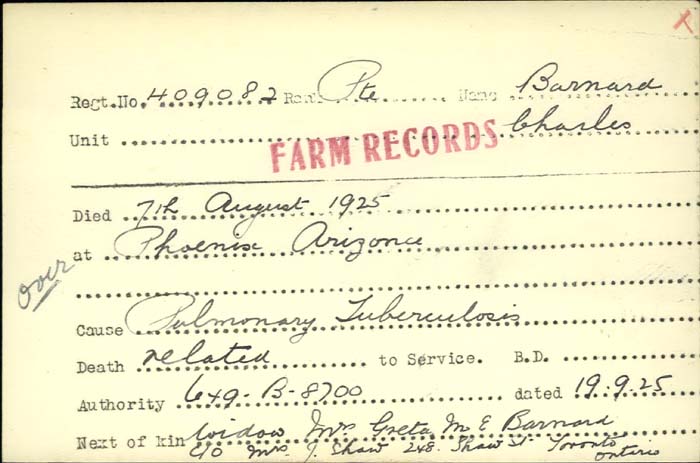 Regt.No. 409082 Rank Pte Name Barnard
Unit Charles
FARM RECORDS
Died 7th August 1925
at Phoenix Arizona
over
Cause Pulmonary Tuberculosis
Death related to Service. B.D.
Authority 649-B-8700 dated 19.9.25
Next of kin Widow Mrs Greta M E Barnard
C/O Mrs J. Shaw 248 Shaw St Toronto
Ontario